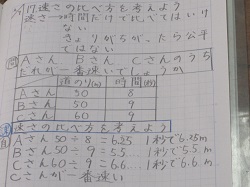 17.速さの比べ方を考えよう
速さ→時間だけで比べてはいけ
ない
きょりがちがったら公平
ではない
Aさん Bさん Cさんのうち
だれが一番速いでしょうか
道のり(m) 時間(秒)
Aさん 50 8
Bさん 50 9
Cさん 60 9
速さの比べ方を考えよう
Aさん50÷8=6.25 1秒で6.25m
Bさん50÷9=5.5.... 1秒で5.5m
Cさん60÷9=6.6... 1秒で6.6m
Cさんが一番速い